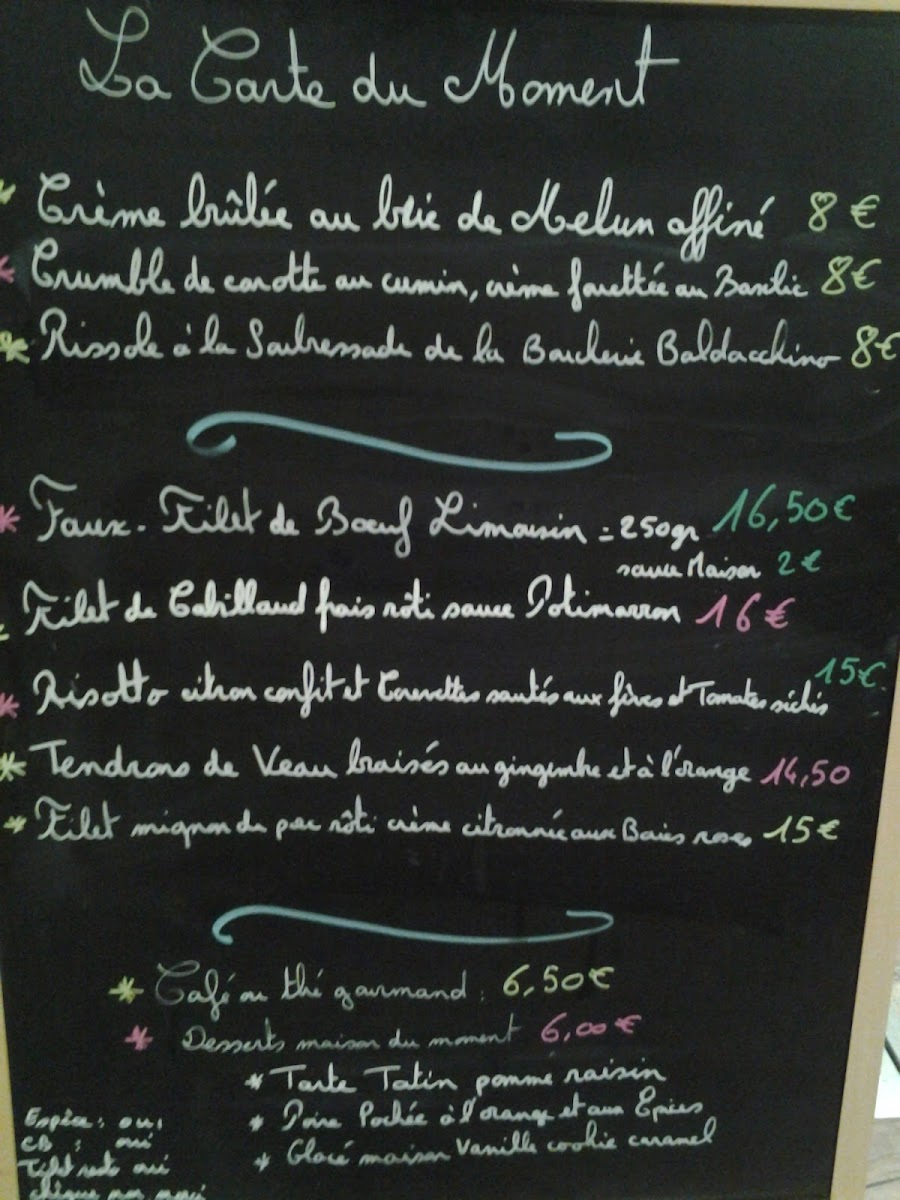 La Carte du Moment
Crème brûlée au brie de Melun affiné 8 €
Crumble de carotte au cumin, crème fouettée au Basilic 8€
Rissole à la Soubressade de la Boucherie Baldacchino 8€
Faux-Filet de Bœuf Limousin = 250gr 16,50€
sauce Maison 2€
Filet de Cabillaud frais rôti sauce Potimarron 16€
Risotto citron confit et Crevettes sautés aux fèves et Tomates séchés 15€
Tendrons de Veau braisés au gingembre et à l'orange 14,50
Filet mignon de porc rôti crème citronnée aux Baies roses 15€
Café ou thé gourmand : 6,50€
Desserts maison du moment 6,00€
* Tarte Tatin pomme raisin
* Poire Pochée à l'orange et aux Epices
* Glacé maison Vanille cookie caramel
Espèce : oui
CB : oui
Ticket resto oui
chèque non merci